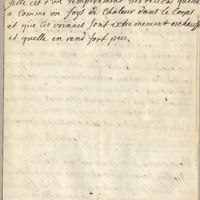 elle est d'un temperament
a comme un foye de Chaleur dans le Corps
et que les urines sont extremement echauff
et quelle en rend fort peu.